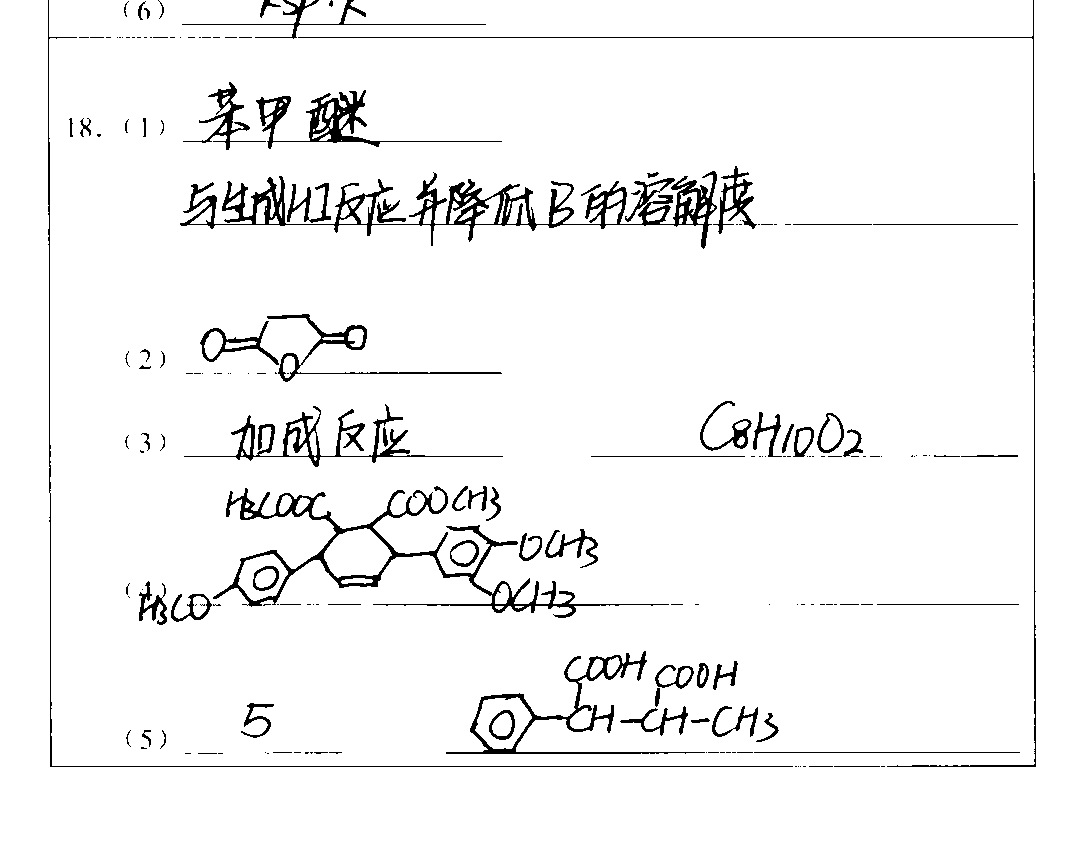 (6)
18. (1) 苯甲醚
与生成HI反应并降低B的溶解度
(2) O O O
(3) 加成反应 C8H10O2
H3COOC COOCH3
OCH3
(4)
H3CO OCH3
COOH COOH
(5) 5 CH-CH-CH3